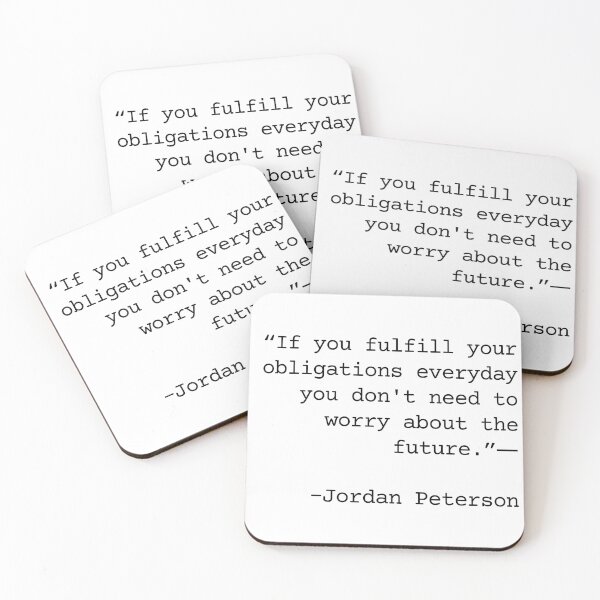 “If you fulfill your
obligations everyday
you don't need
“If you fulfill your
obligations everyday
you don't need to
worry about the
future.”—
rson
“If you fulfill your
obligations everyday
you don't need to
worry about the
–Jordan
“If you fulfill your
obligations everyday
you don't need to
worry about the
future.”—
–Jordan Peterson